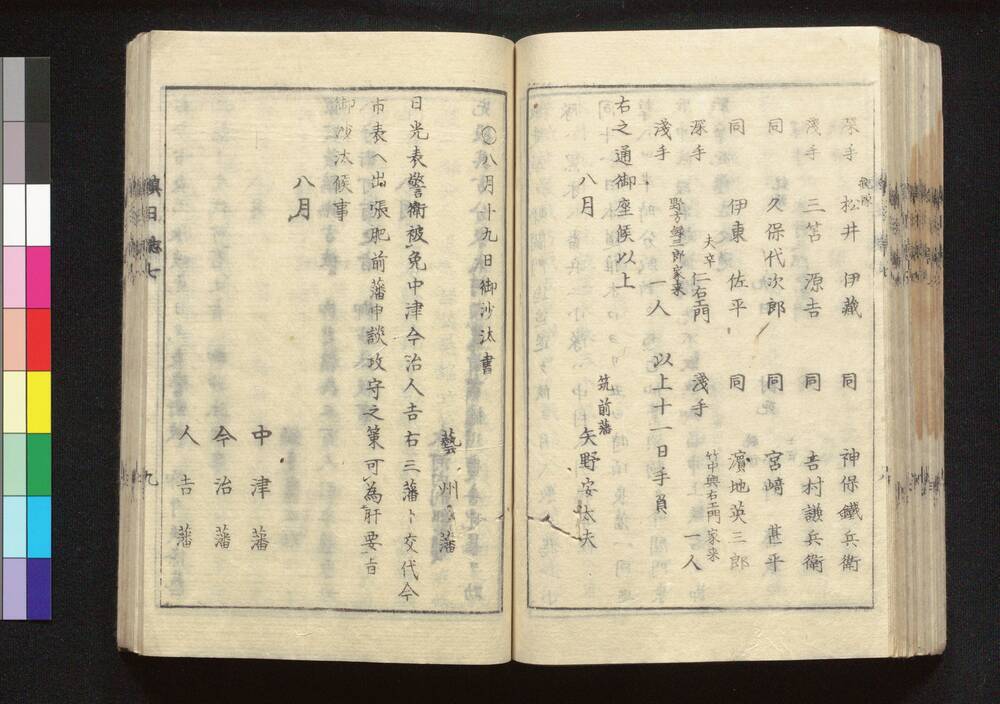 深手 松井 伊藏 同 神保鐵兵衛
淺手 三笘 源吉 同 吉村謙兵衛
同 久保代次郎 同 宮﨑 甚平
同 伊東 佐平 同 濵地英三郎
深手 夫卒 仁右エ門 淺手 竹中與右エ門家来 一人
淺手 家来 一人 以上十一日手負
右之通御座候以上
八月 筑前藩 矢野安太夫
○八月十九日御沙汰書
藝州藩
日光表警衛被免中津今治人吉右三藩ト交代今
市表ヘ出張肥前藩申談攻守之策可為肝要旨
御沙汰候事
八月
中津藩
今治藩
人吉藩
鎮日誌七 九